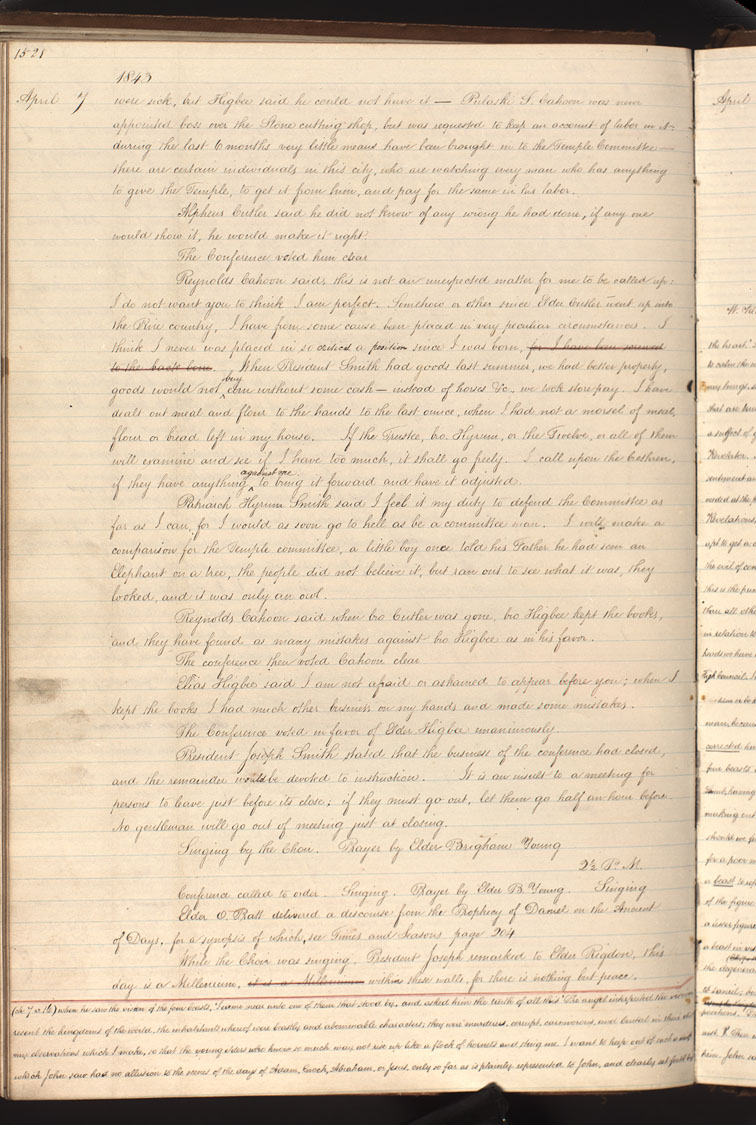 1521
1843
April 7 were sick, but Higbee said he could not have it — Pulaski S. Cahoon was never
appointed boss over the Stone cutting shop, but was requested to keep an account of labor in it.
during the last 6 months very little means have been brought in to the Temple Committee —
there are certain individuals in this city, who are watching every man who has anything
to give the Temple, to get it from him, and pay for the same in his labor.
Alpheus Cutler said he did not know of any wrong he had done, if any one
would show it, he would make it right.
The Conference voted him clear
Reynolds Cahoon said, this is not an unexpected matter for me to be called up:
I do not want you to think I am perfect. Somehow or other since Elder Cutler went up into
the Pine country, I have from some cause been placed in very peculiar circumstances. I
think I never was placed in so critical a position since I was born, for I have been screwed
to the back bone. When President Smith had goods last summer, we had better property,
goods would not buy corn without some cash — instead of horses &c. we took store pay. I have
dealt out meal and flour to the hands to the last ounce, when I had not a morsel of meal,
flour or bread left in my house. If the Trustee, bro. Hyrum, or the Twelve, or all of them
will examine and see if I have too much, it shall go freely. I call upon the brethren,
if they have anything against me to bring it forward and have it adjusted.
Patriarch Hyrum Smith said I feel it my duty to defend the Committee as
far as I can, for I would as soon go to hell as be a committee man. I will make a
comparison for the Temple committee, a little boy once told his Father he had seen an
Elephant on a tree, the people did not believe it, but ran out to see what it was, they
looked, and it was only an owl.
Reynolds Cahoon said when bro Cutler was gone, bro Higbee kept the books,
and they have found as many mistakes against bro Higbee as in his favor.
The conference then voted Cahoon clear
Elias Higbee said I am not afraid or ashamed to appear before you; when I
kept the books I had much other business on my hands and made some mistakes.
The Conference voted in favor of Elder Higbee unanimously.
President Joseph Smith stated that the business of the conference had closed,
and the remainder would be devoted to instruction. It is an insult to a meeting for
persons to leave just before its close; if they must go out, let them go half an hour before.
No gentleman will go out of meeting just at closing.
Singing by the Choir. Prayer by Elder Brigham Young
2½ P. M.
Conference called to order. Singing. Prayer by Elder B. Young. Singing
Elder O. Pratt delivered a discourse from the Prophecy of Daniel on the Ancient
of Days, for a synopsis of which, see Times and Seasons page 204
While the Choir was singing. President Joseph remarked to Elder Rigdon, This
day is a Millenium, it is a Millenium within these walls, for there is nothing but peace.
(ch 7 v. 16) when he saw the vision of the four beasts, "I came near unto one of them that stood by, and asked him the truth of all this" The angel interpreted the
resent the kingdoms of the world, the inhabitants whereof were beastly and abominable characters; they were murderers, corrupt, carnivorous, and brutal in their
my observations which I make, so that the young elders who know so much may not rise up like a flock of hornets and sting me. I want to keep out of such a
which John saw had no allusion to the scenes of the days of Adam, Enoch, Abraham, or Jesus, only so far as is plainly represented to John, and clearly set forth by
April